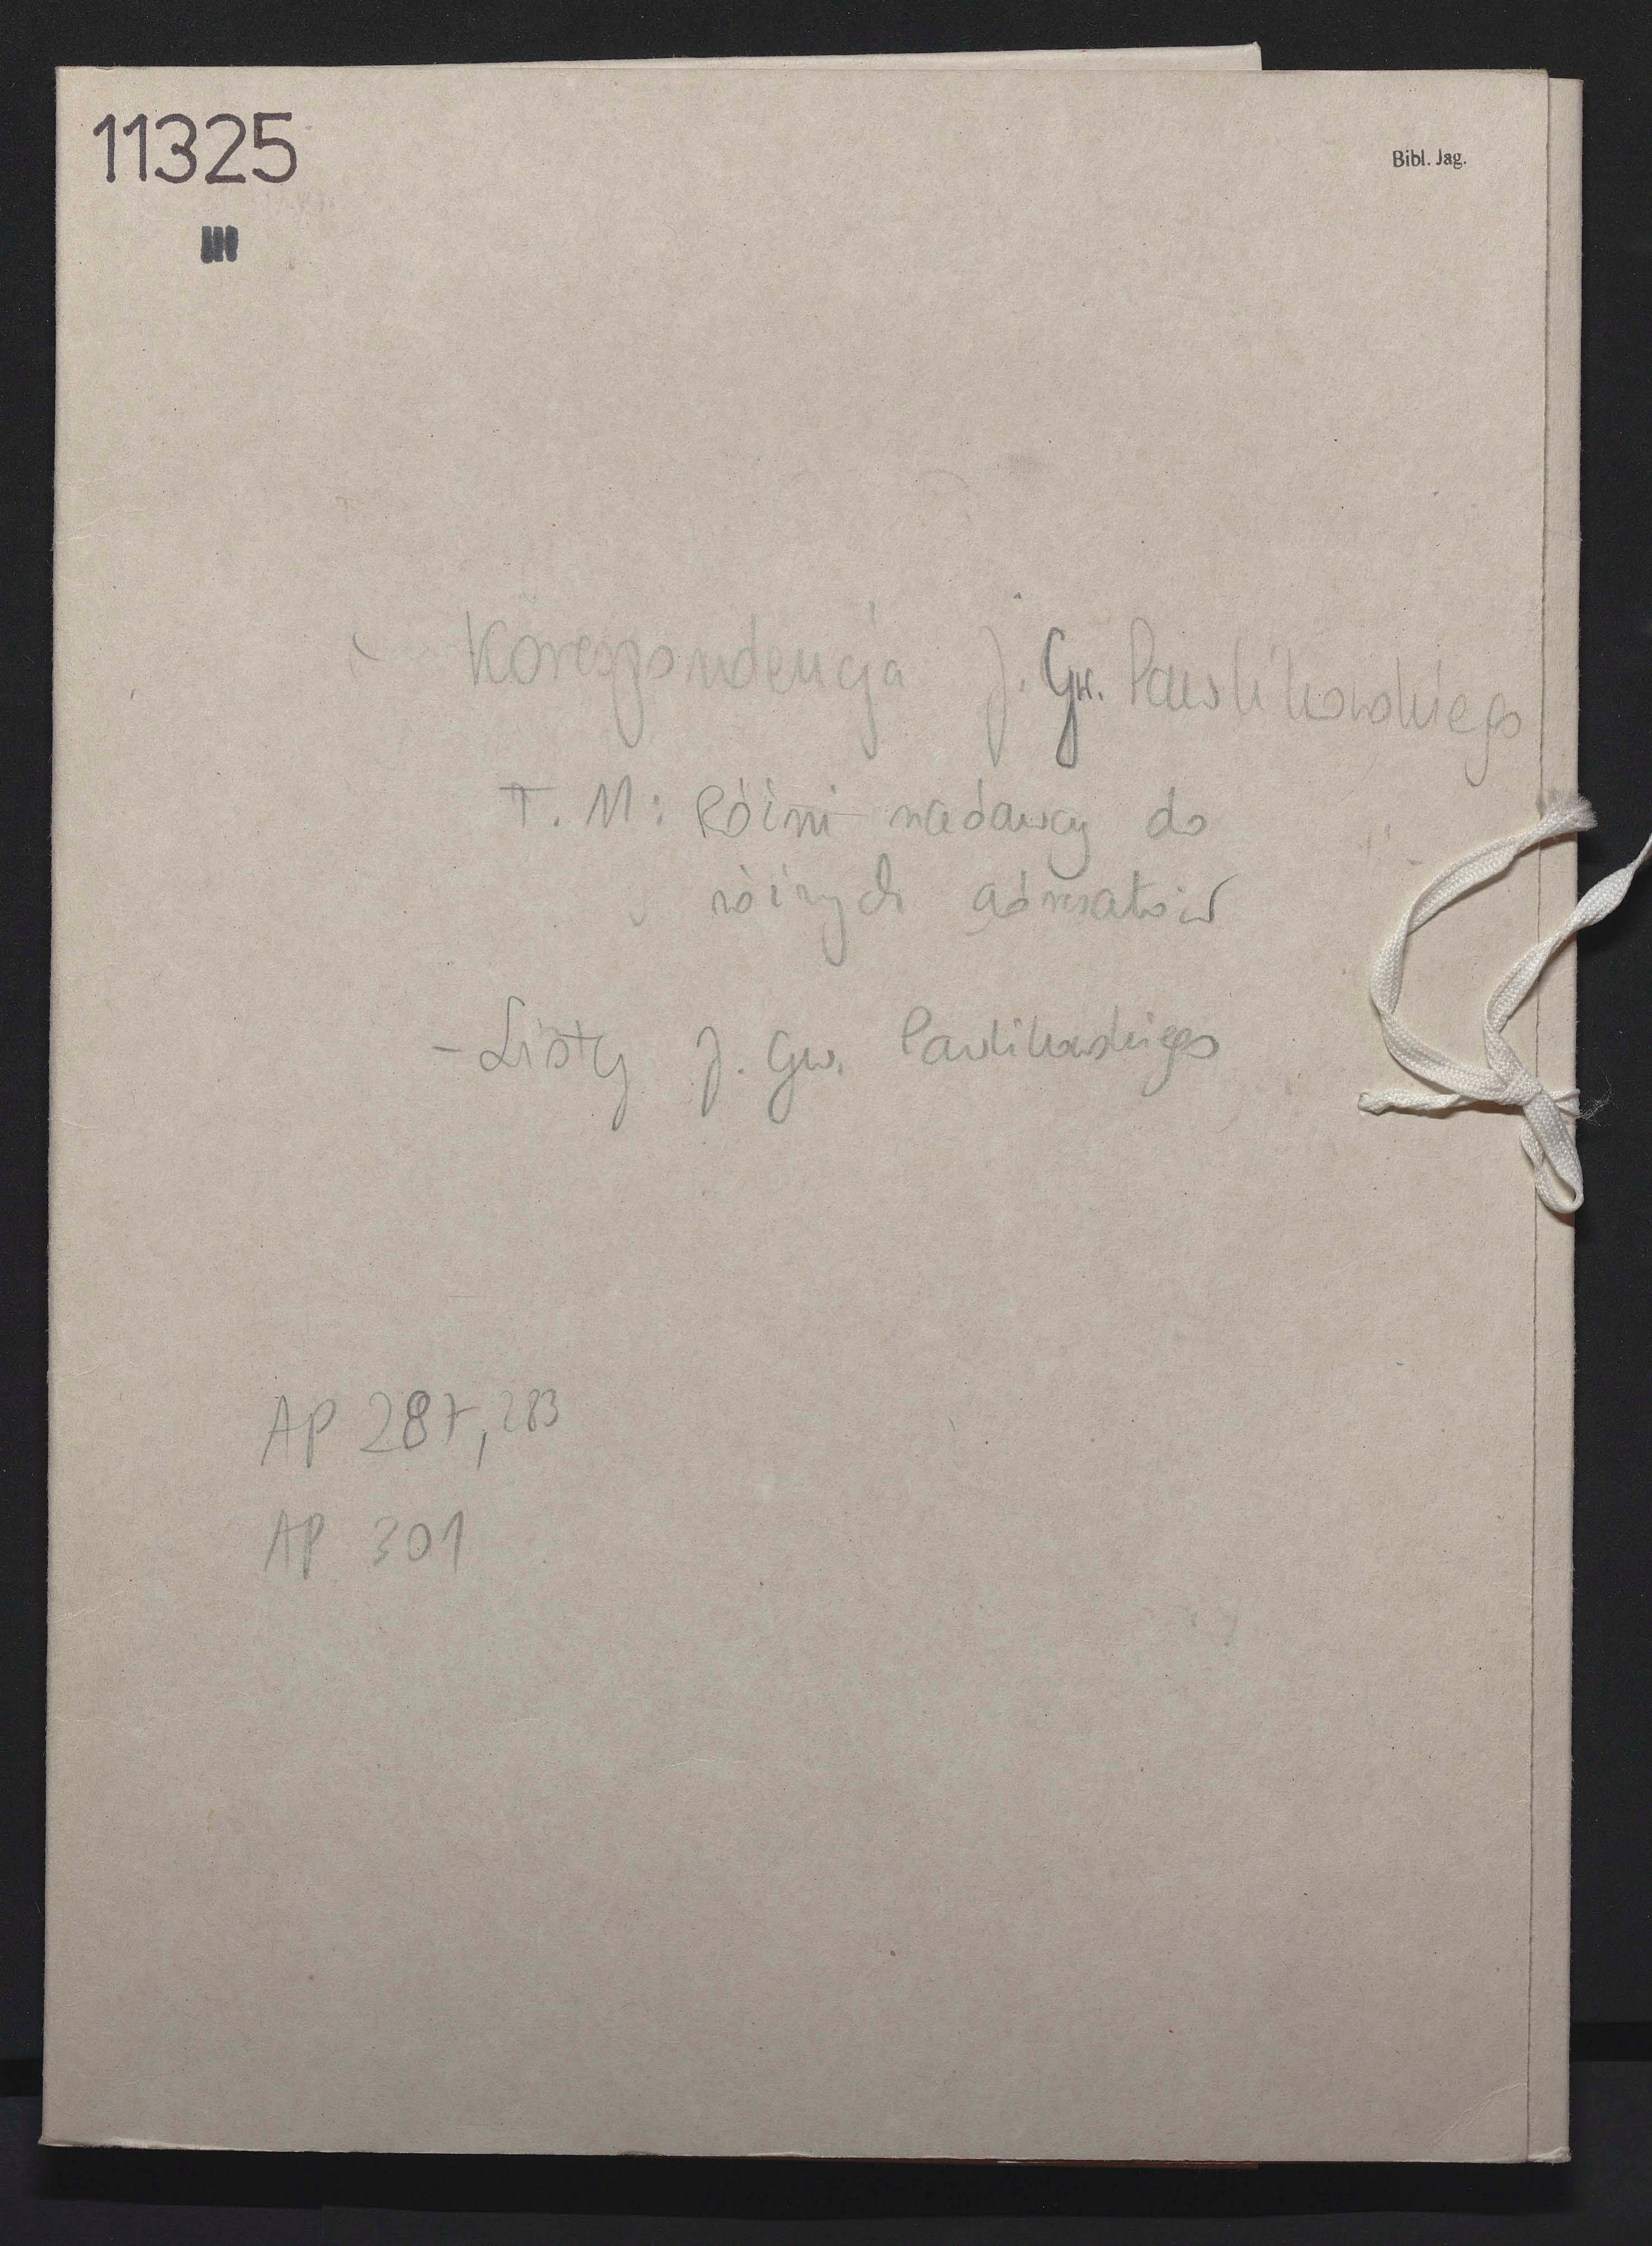 11325
III
Bibl. Jag.
Korespondencja J. Gw. Pawlikowskiego
T. 11: Różni nadawcy do
różnych adresatów
- Listy J. Gw. Pawlikowskiego
AP 287, 283
AP 301